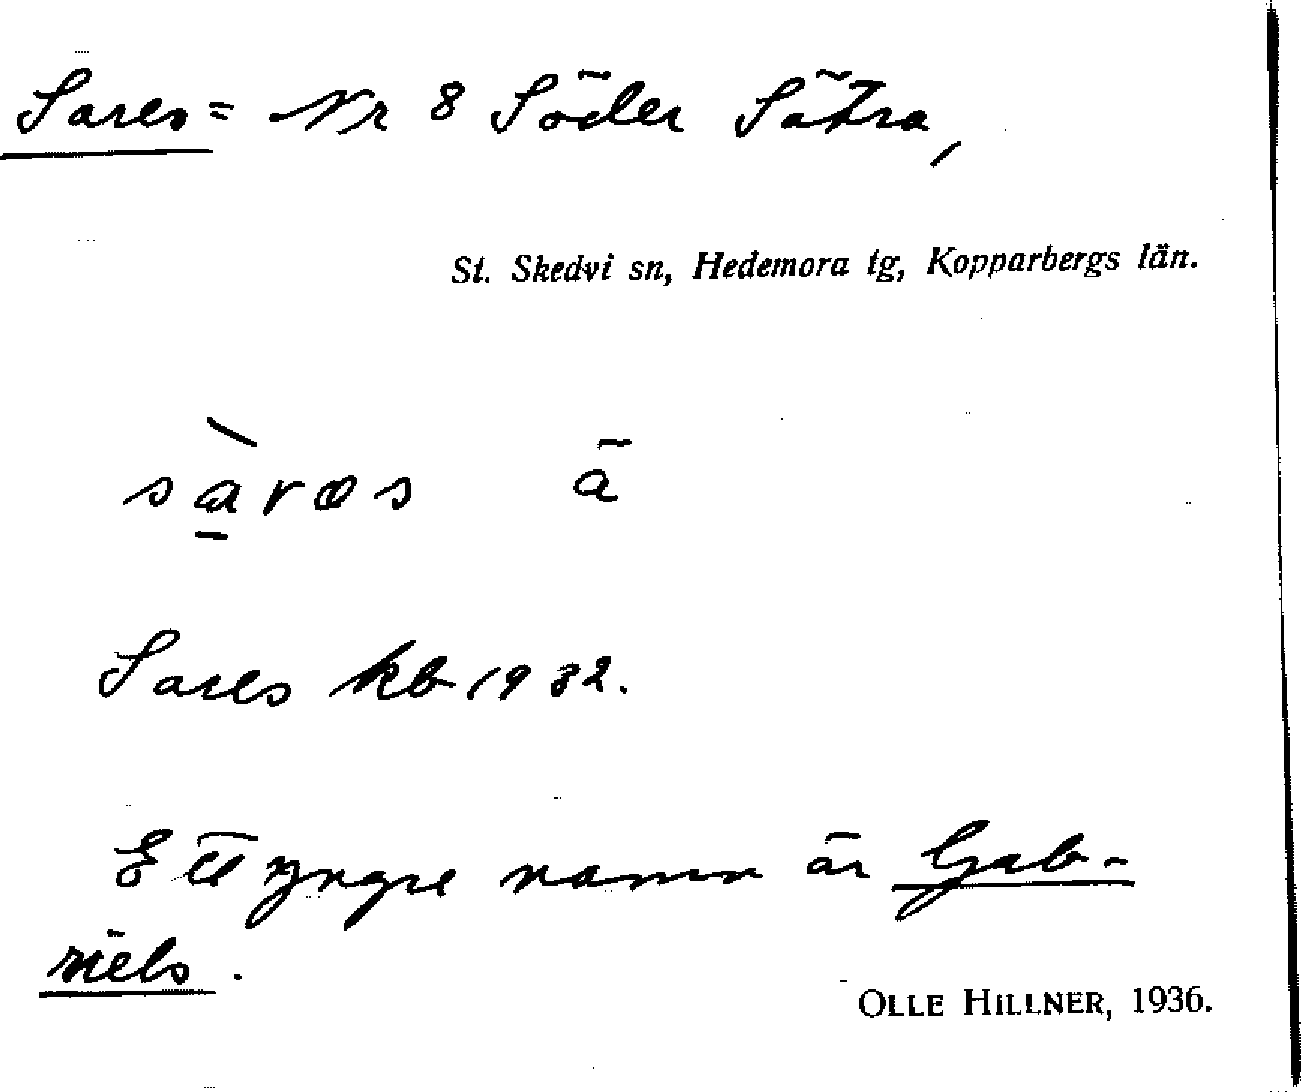 Sares = Nr 8 Söder Sätra,
St. Skedvi sn, Hedemora tg, Kopparbergs län.
sàras ä
Sares kb 1932.
Ett yngre namn är Gab-
riels.
OLLE HILLNER, 1936.